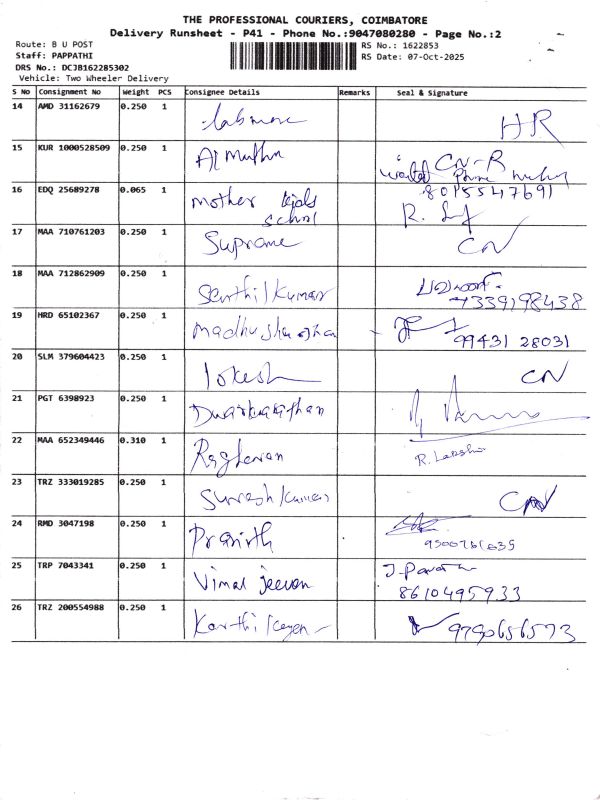 THE PROFESSIONAL COURIERS, COIMBATORE
Delivery Runsheet - P41 - Phone No.:9047080280 - Page No.:2
Route: B U POST
RS No.: 1622853
Staff: PAPPATHI
RS Date: 07-Oct-2025
DRS No.: DCJB162285302
Vehicle: Two Wheeler Delivery
S No Consignment No Weight PCS Consignee Details Remarks Seal & Signature
14 AMD 31162679 0.250 1 HR
15 KUR 1000528509 0.250 1 CN-R
8015547691
16 EDQ 25689278 0.065 1 mother
school
17 MAA 710761203 0.250 1 Supreme CN
18 MAA 712862909 0.250 1 Senthil Kumar
7339198438
19 HRD 65102367 0.250 1
99431 28031
20 SLM 379604423 0.250 1 lokesh CN
21 PGT 6398923 0.250 1
22 MAA 652349446 0.310 1 Raghavan
23 TRZ 333019285 0.250 1 Suresh Kumar
24 RMD 3047198 0.250 1
25 TRP 7043341 0.250 1 Vimal Jeevan
8610495933
26 TRZ 200554988 0.250 1 9790656573